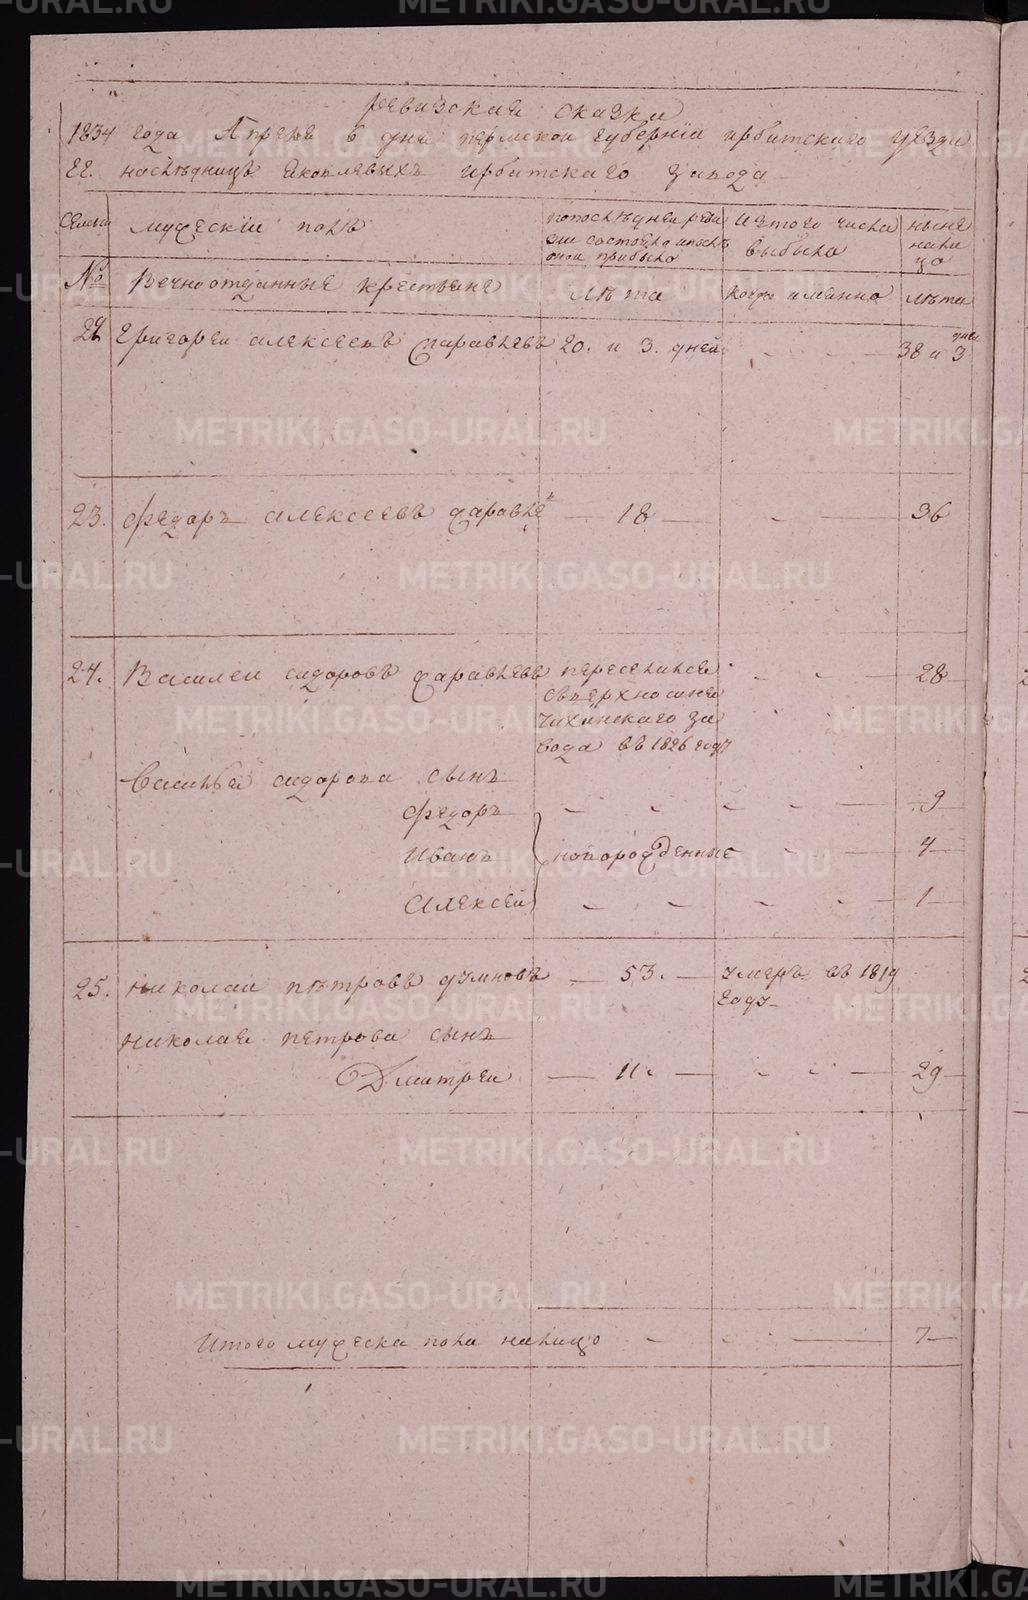 ревизская сказка
1834 года Апреля 6 дня пермской губернiи ирбитскаго уѣзда
ГГ. наслѣдницъ Яковлевыхъ ирбитскаго завода
семьи мужескiи полъ
по последнеи реви зiи состояло и после оной прибыло
изтого числа выбыло
ныне на ли цо
№ Вечноотданные крестьяне лѣта когда именно лѣта
22 григореи алексеевъ Журавлевъ 20. и 3. дней 38 и 3 дней
23. федоръ алексеевъ Журавле въ 18 36
24. Василеи сидоровъ Журавлевъ переселился 28
съверхносиня
чихинскаго за
вода въ 1826 году
Василья сидорова сынъ
федоръ 9
Иванъ новорожденные 4
Алексей 1
25. николаи петровъ думновъ 53. умеръ въ 1819
году
николая петрова сынъ
Дмитреи 11. 29
Итого мужеска пола налицо 7
METRIKI.GASO-URAL.RU